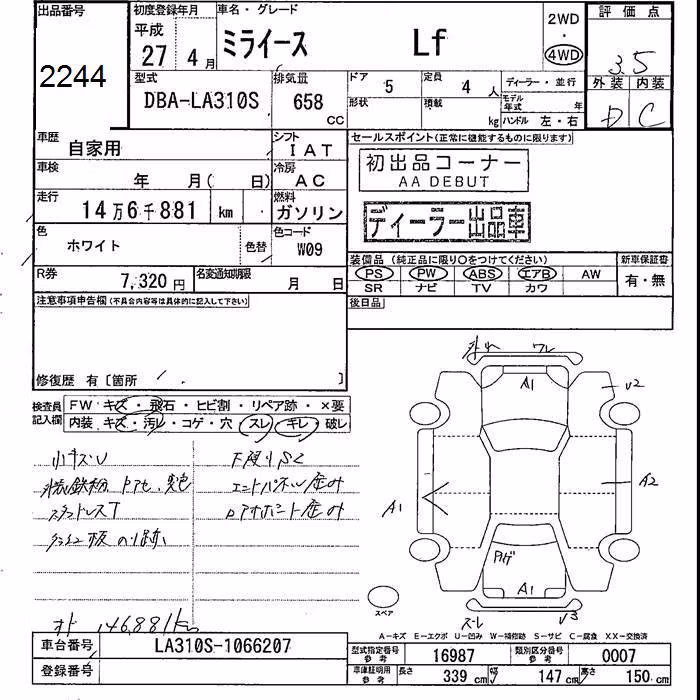 出品番号
2244
初度登録年月
平成
27 4月
車名・グレード
ミライース Lf
2WD
・
4WD
評価点
3.5
外装 内装
D C
型式
DBA-LA310S
排気量
658
CC
ドア 5
定員 4 人
形状
積載 kg
ディーラー・並行
モデル年式 年
ハンドル 左・右
車歴 自家用
シフト IAT
車検 年 月( 日)
冷房 AC
走行 14万6千881 km
燃料 ガソリン
色 ホワイト 色替
色コード W09
R券 7,320円
名変通知期限 月 日
セールスポイント(正常に機能するものに限ります)
初出品コーナー
AA DEBUT
ディーラー出品車
装備品(純正品に限り○をつけてください)
PS PW ABS エアB AW
SR ナビ TV カワ
新車保証書
有・無
後日品
注意事項申告欄(不具合内容等は具体的に記入して下さい)
修復歴 有〔箇所 〕
検査員記入欄
FW キズ・飛石・ヒビ割・リペア跡・×要
内装 キズ・汚レ・コゲ・穴 スレ・キレ・破レ
小キズU
下廻りS2
エンドパネル歪み
オト 146,881km
ワレ
A1
U2
A2
A1
A1
スペア
スレ
A−キズ E−エクボ U−凹み W−補修跡 S−サビ C−腐食 XX−交換済
車台番号 LA310S-1066207
登録番号
型式指定番号参考 16987
類別区分番号参考 0007
車庫証明用参考 長さ 339cm 幅 147cm 高さ 150cm